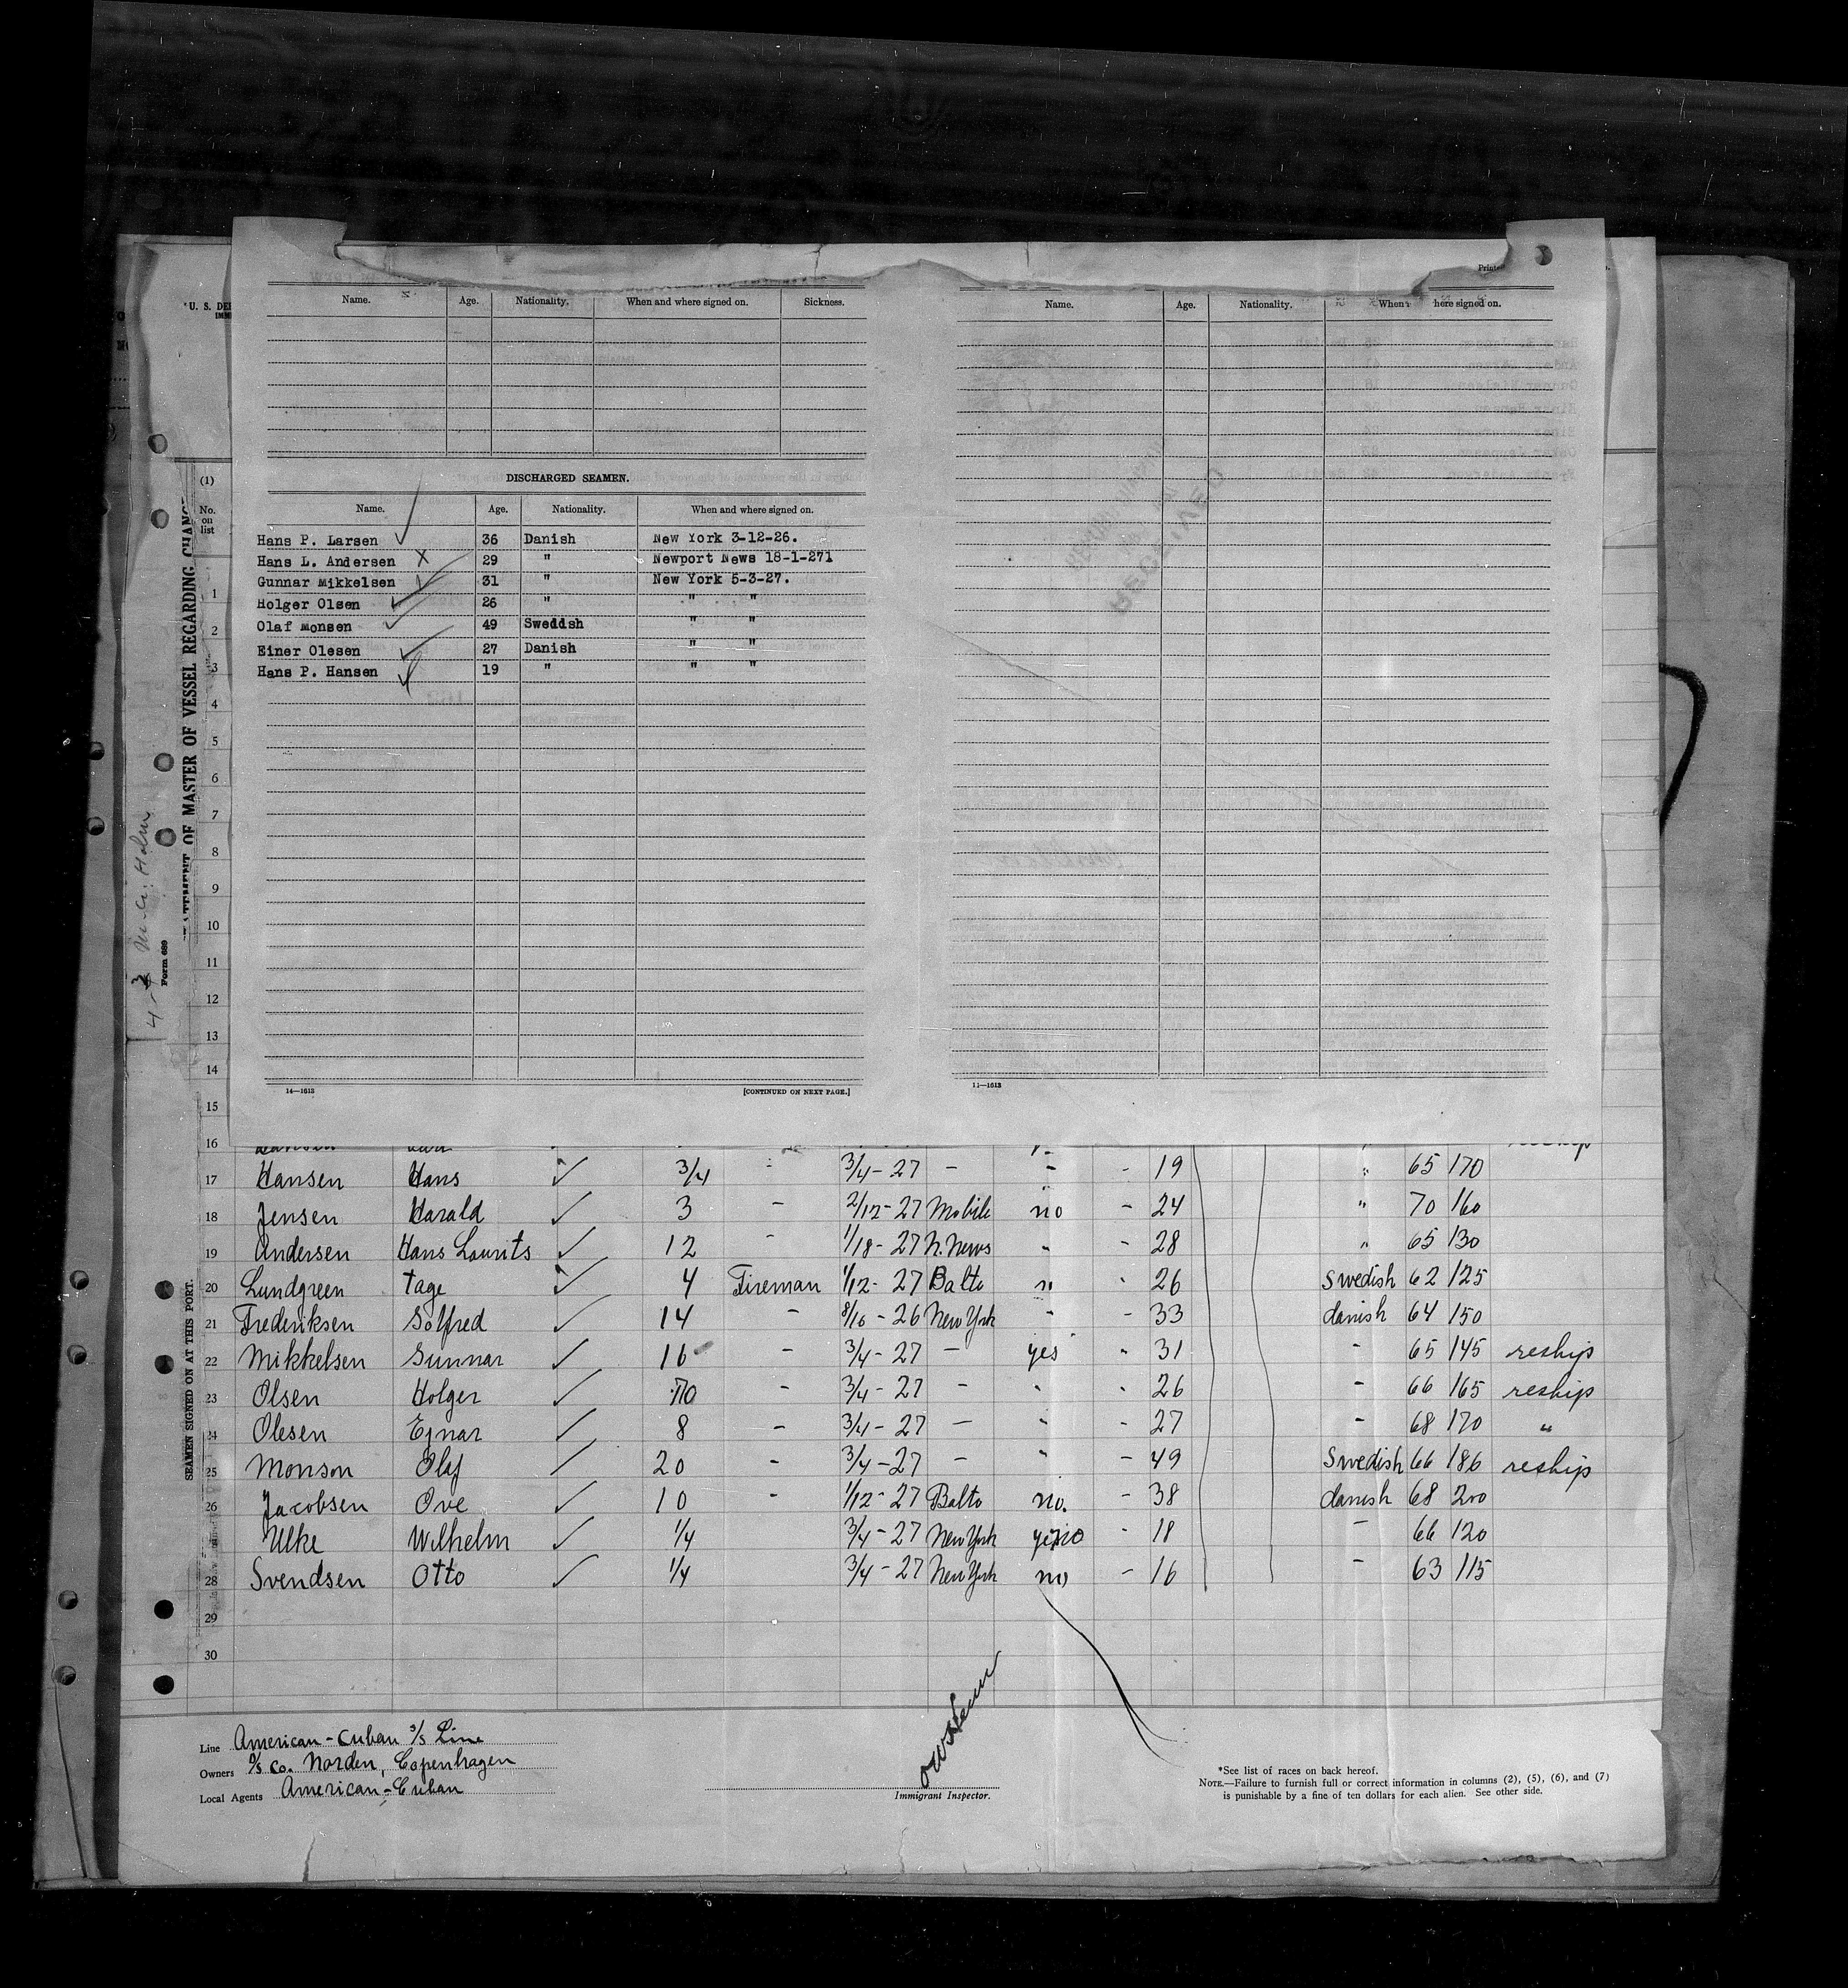 U. S. DEP
Name. Age. Nationality. When and where signed on. Sickness.
Name. Age. Nationality. When here signed on.
DISCHARGED SEAMEN.
Name. Age. Nationality. When and where signed on.
Hans P. Larsen 36 Danish New York 3-12-26.
Hans L. Andersen 29 " Newport News 18-1-271
Gunnar Mikkelsen 31 " New York 5-3-27.
Holger Olsen 26 " " "
Olaf Monsen 49 Sweddsh " "
Einer Olesen 27 Danish " "
Hans P. Hansen 19 " " "
14—1613 [CONTINUED ON NEXT PAGE.]
14—1613
OF MASTER OF VESSEL REGARDING
Form 689
SEAMEN SIGNED ON AT THIS PORT.
(1)
No. on list
1
2
3
4
5
6
7
8
9
10
11
12
13
14
15
16
17 Hansen Hans ✓ 3/4 - 3/4-27 - - - 19 " 65 170
18 Jensen Harald ✓ 3 - 2/12-27 Mobile no - 24 " 70 160
19 Andersen Hans Laurits ✓ 12 - 1/18-27 N. News - - 28 " 65 130
20 Lundgreen Tage ✓ 4 Fireman 1/12-27 Balto " - 26 Swedish 62 125
21 Frederiksen Solfred ✓ 14 - 8/10-26 New York - - 33 danish 64 150
22 Mikkelsen Gunnar ✓ 16 - 3/4-27 - yes " 31 - 65 145 reship
23 Olsen Holger ✓ - 3/4-27 - - - 26 - 66 165 reship
24 Olesen Ejnar ✓ 8 - 3/4-27 - - - 27 - 68 170 "
25 Monson Olaf 20 - 3/4-27 - " - 49 Swedish 66 186 reship
26 Jacobsen Ove ✓ 10 - 1/12-27 Balto no. - 38 danish 68 200
Ulke Wilhelm ✓ 1/4 3/4-27 New York no - 18 - 66 120
28 Svendsen Otto ✓ 1/4 3/4-27 New York no - 16 - 63 115
29
30
Line American-Cuban S/S Line
Owners D/S Co. Norden, Copenhagen
Local Agents American-Cuban
Immigrant Inspector.
*See list of races on back hereof.
NOTE.—Failure to furnish full or correct information in columns (2), (5), (6), and (7)
is punishable by a fine of ten dollars for each alien. See other side.